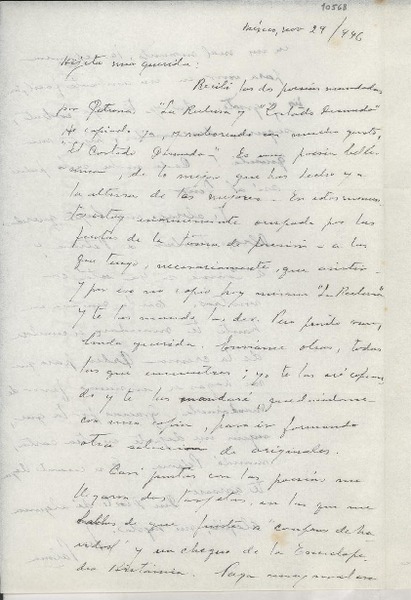 10568
México, nov 29/946
Hijita muy querida:
Recibí los dos poesías mandadas
por Petrona "La Reclusa y Costado Desnudo"
He copiado ya, saboreando con mucho gusto,
"El Costado Desnudo". Es una poesía bellí-
sima, de lo mejor que has hecho y a
la altura de las mejores. En estos momen-
tos estoy enormemente ocupada por las
fiestas de la toma de posesión a las
que tengo, necesariamente, que asistir
y por eso no copio hoy mismo "La Reclusa"
y te los mando las dos. Pero pronto irán,
linda querida. Envíame otras, todas
las que encuentres; yo te las iré copian-
do y te las mandaré quedándome
con una copia, para ir formando
otra de originales.
Casi juntas con las poesías me
llegaron dos tarjetas, en las que me
hablas de que fuiste a comprar
y un cheque de la Enciclope-
dia Británica.